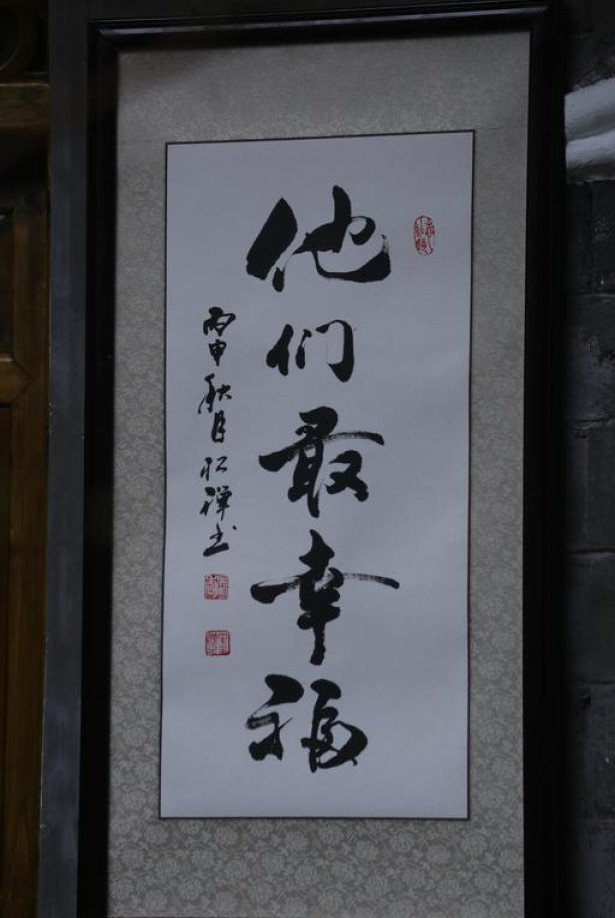 他们最幸福
丙申秋月仁禅书